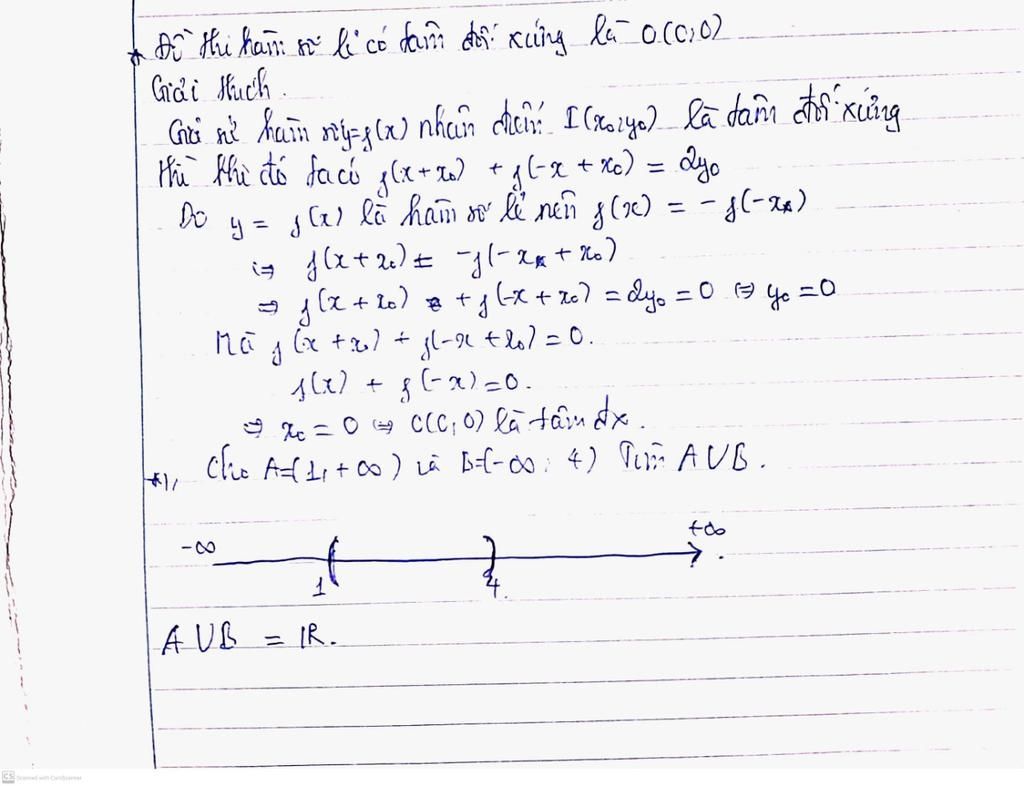 * Đồ thị hàm số lẻ có tâm đối xứng là O(0;0)
Giải thích.
Giả sử hàm số y=f(x) nhận điểm I(x₀;y₀) là tâm đối xứng
thì khi đó ta có f(x+x₀) + f(-x+x₀) = 2y₀
Do y = f(x) là hàm số lẻ nên f(x) = -f(-x)
⇒ f(x+x₀) = -f(-x+x₀)
⇒ f(x+x₀) + f(-x+x₀) = 2y₀ = 0 ⇔ y₀ = 0
Mà f(x+x₀) + f(-x+x₀) = 0.
f(x) + f(-x) = 0.
⇒ x₀ = 0 ⇔ O(0;0) là tâm đx.
*1, Cho A=(1,+∞) và B=(-∞; 4) Tìm A∪B.
-∞ ( ) +∞
1 4
A∪B = ℝ.
CS Scanned with CamScanner